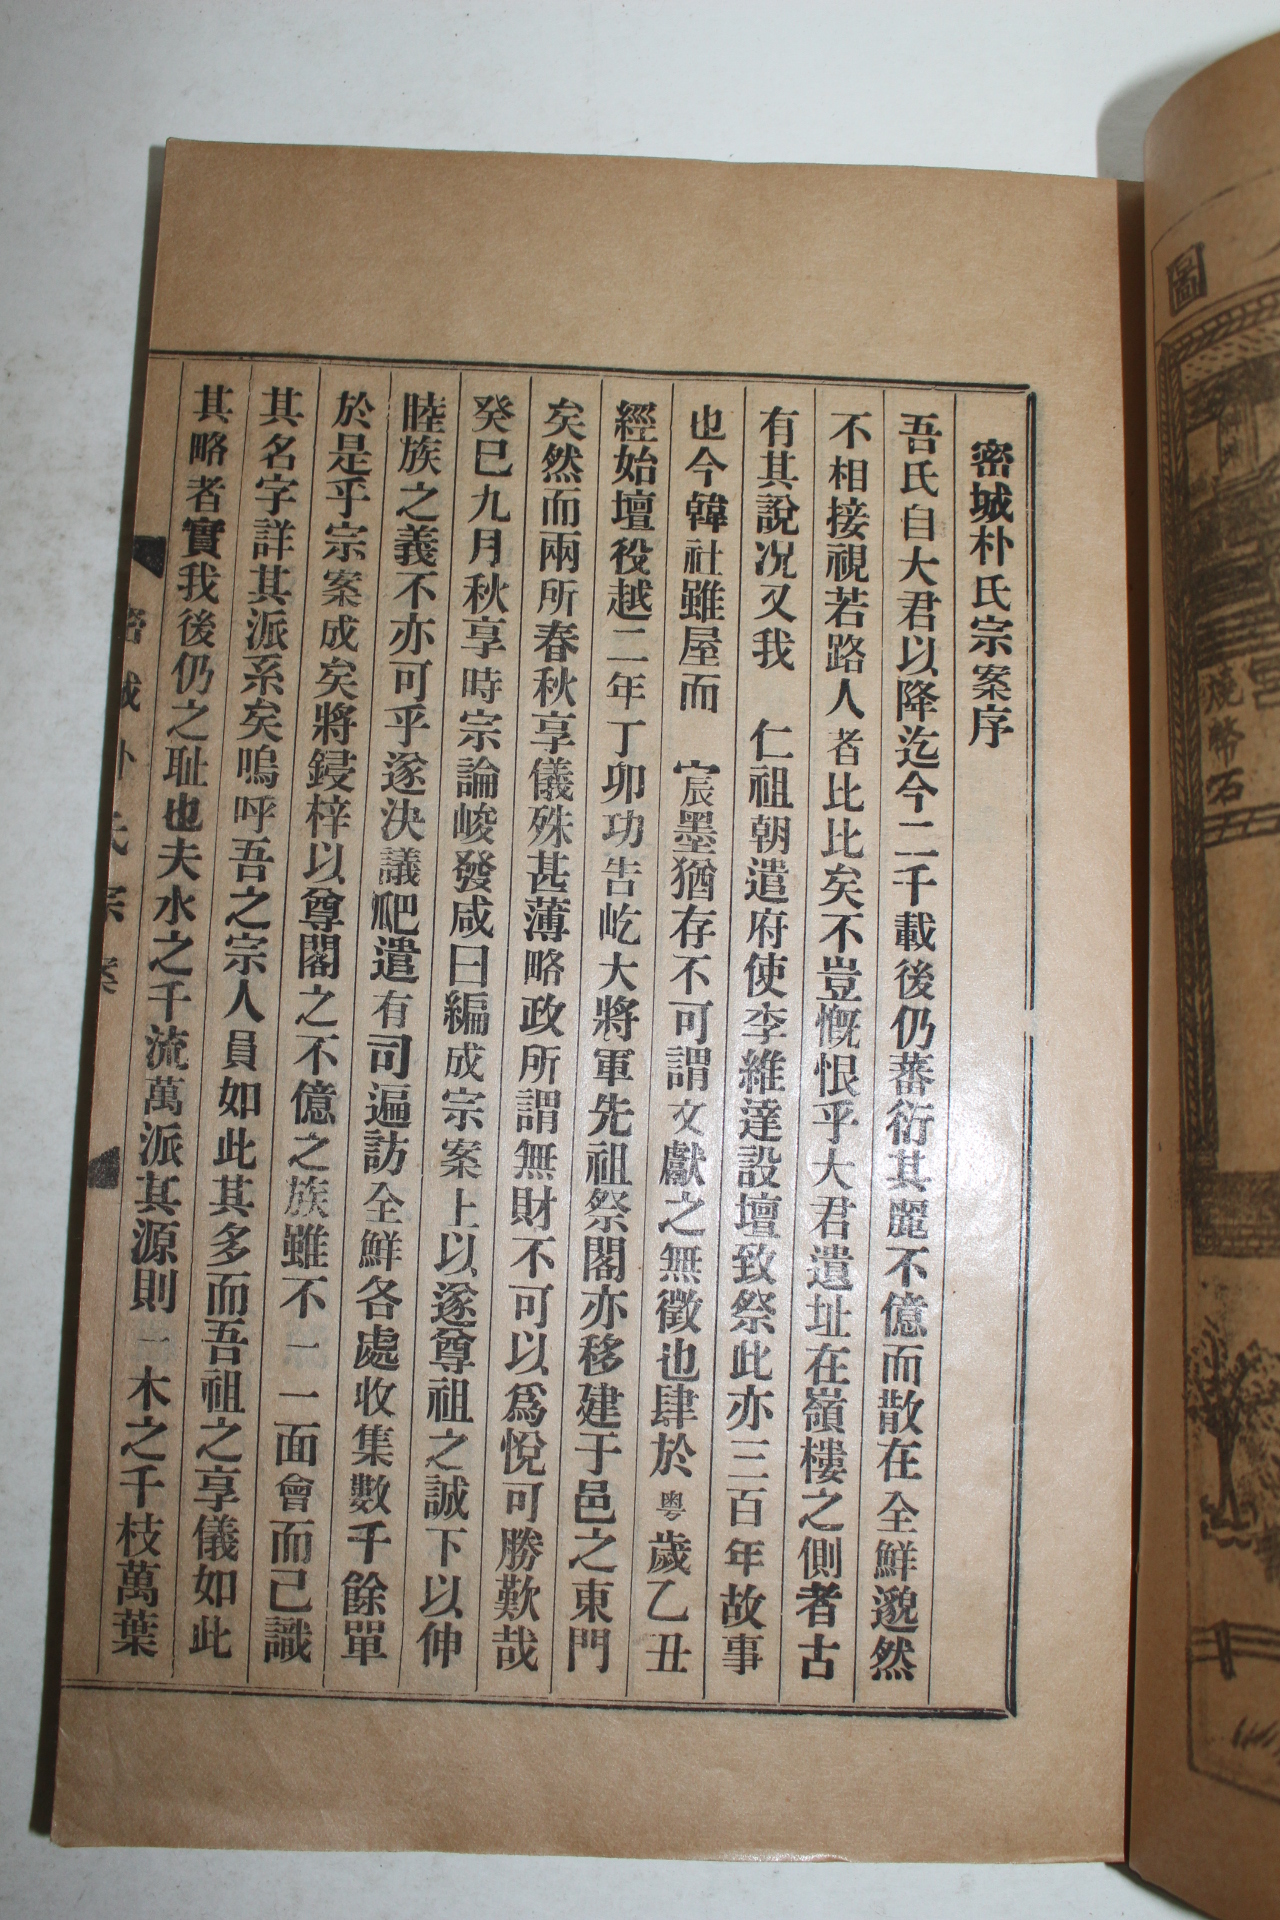 密城朴氏宗案序
吾氏自大君以降迄今二千載後仍蕃衍其麗不億而散在全鮮邈然
不相接視若路人者比比矣不豈慨恨乎大君遺址在嶺樓之側者古
有其說况又我 仁祖朝遣府使李維達設壇致祭此亦三百年故事
也今韓社雖屋而 宸墨猶存不可謂文獻之無徵也肆於粤歲乙丑
經始壇役越二年丁卯功告屹大將軍先祖祭閣亦移建于邑之東門
矣然而兩所春秋享儀殊甚薄略政所謂無財不可以爲悅可勝歎哉
癸巳九月秋享時宗論峻發咸曰編成宗案上以遂尊祖之誠下以伸
睦族之義不亦可乎遂決議爬遣有司遍訪全鮮各處收集數千餘單
於是乎宗案成矣將鋟梓以尊閣之不億之族雖不一一面會而已識
其名字詳其派系矣嗚呼吾之宗人員如此其多而吾祖之享儀如此
其略者實我後仍之耻也夫水之千流萬派其源則一木之千枝萬葉
密城朴氏宗案
圖
燒幣石